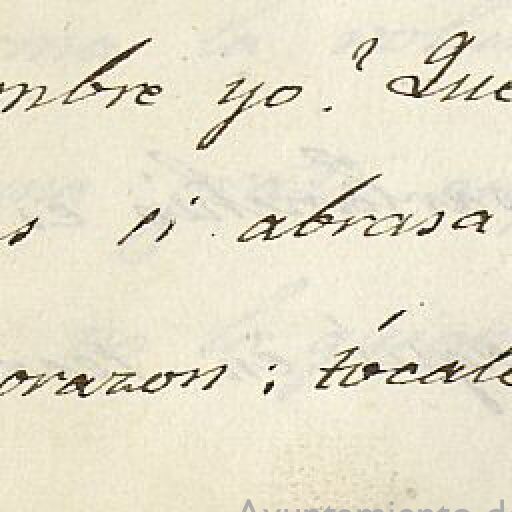 mbre yo? Que
s si abrasa
orazon; tócale
Ayuntamiento de